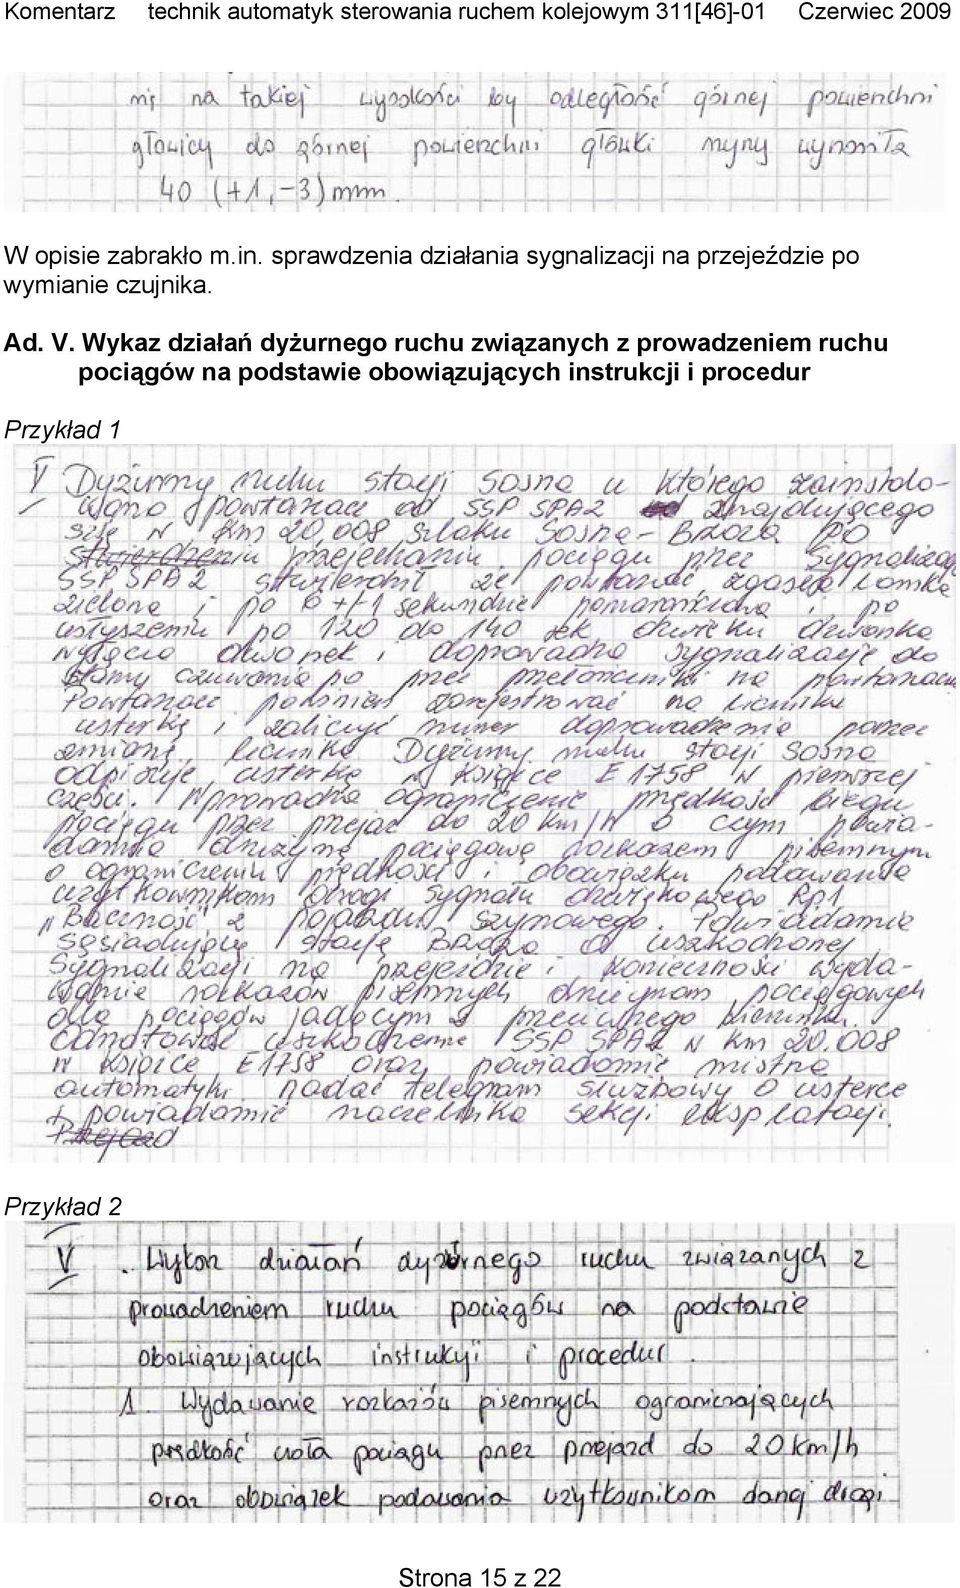 Komentarz technik automatyk sterowania ruchem kolejowym 311[46]-01 Czerwiec 2009
się na takiej wysokości by odległość górnej powierzchni
głowicy do górnej powierzchni główki szyny wynosiła
40 (+1, -3) mm.
W opisie zabrakło m.in. sprawdzenia działania sygnalizacji na przejeździe po
wymianie czujnika.
Ad. V. Wykaz działań dyżurnego ruchu związanych z prowadzeniem ruchu
pociągów na podstawie obowiązujących instrukcji i procedur
Przykład 1
V Dyżurny ruchu stacji Sosna u którego zainstalo-
wano powtarzacz od SSP SPA2 znajdującego
się w km 20,008 szlaku Sosna - Brzoza PO
stwierdzeniu przejechaniu pociągu przez Sygnalizację
SSP SPA 2 stwierdził że powtarzacz zgasła lamka
zielona i po 6 +/-1 sekundzie pomarańczowa i po
usłyszeniu po 120 do 140 sek dźwięku dzwonka
wyłącza dzwonek i doprowadza sygnalizację do
stanu czuwania po przez przełączniki na powtarzaczu
Powtarzacz powinien zarejestrować na liczniku
usterkę i zaliczyć numer doprowadzenia poprzez
zmianę licznika Dyżurny ruchu stacji Sosna
odpisuje usterkę w książce E1758 w pierwszej
części. Wprowadza ograniczenie prędkości biegu
pociągu przez przejazd do 20 km/h o czym powia-
damia drużynę pociągową rozkazem pisemnym
o ograniczeniu prędkości i obowiązku podawania
użytkownikom drogi sygnału dźwiękowego Rp1
„Baczność" z pojazdu szynowego. Powiadamia
Sąsiadującą stację Brzoza o uszkodzonej
Sygnalizacji na przejeździe i konieczności wyda-
wania rozkazów pisemnych drużynom pociągowych
dla pociągów jadącym z przeciwnego kierunku.
Odnotować uszkodzenie SSP SPA2 w km 20.008
w książce E1758 oraz powiadomić mistrza
automatyki nadać telegram służbowy o usterce
+ powiadomić naczelnika sekcji eksploatacji.
Przejazd
Przykład 2
V. Wykaz działań dyżurnego ruchu związanych z
prowadzeniem ruchu pociągów na podstawie
obowiązujących instrukcji i procedur.
1. Wydawanie rozkazów pisemnych ograniczających
prędkość czoła pociągu przez przejazd do 20 km/h
oraz obowiązek podawania użytkownikom danej drogi
Strona 15 z 22